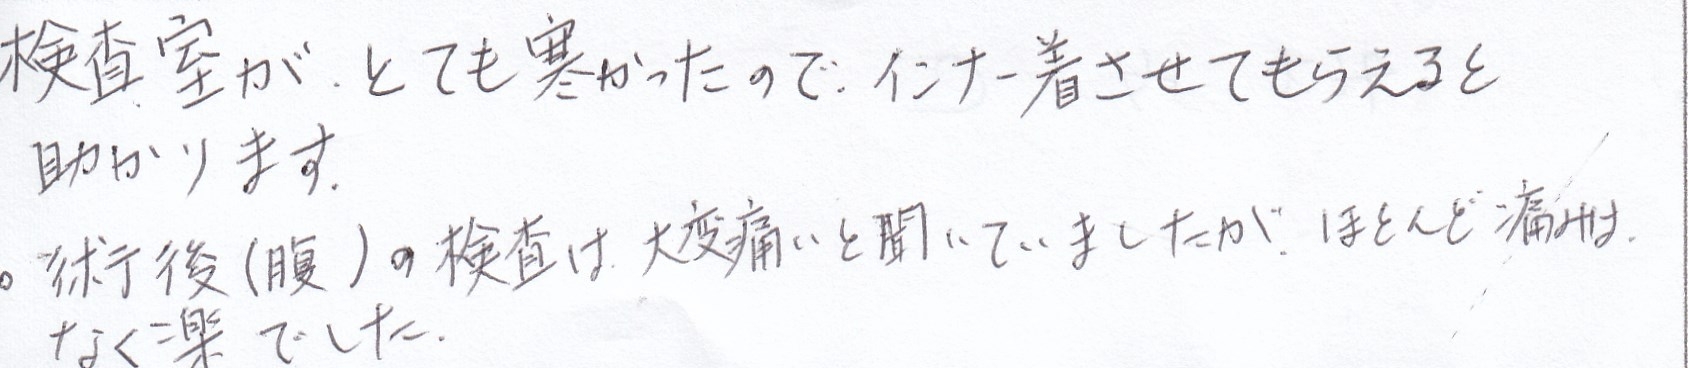 検査室が、とても寒かったので、インナー着させてもらえると
助かります。
。術後(腹)の検査は、大変痛いと聞いていましたが、ほとんど痛みは、
なく楽でした。